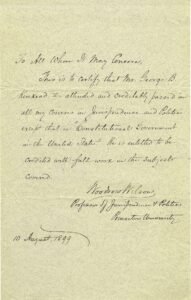 To All Whom It May Concern,
This is to certify, that Mr. George B.
Kinkead attended and creditably passed in
all my courses in Jurisprudence and Politics
except that in Constitutional Government
in the United States. He is entitled to be
credited with full work in the subjects
covered.
Woodrow Wilson,
Professor of Jurisprudence & Politics
Princeton University,
10 August, 1899